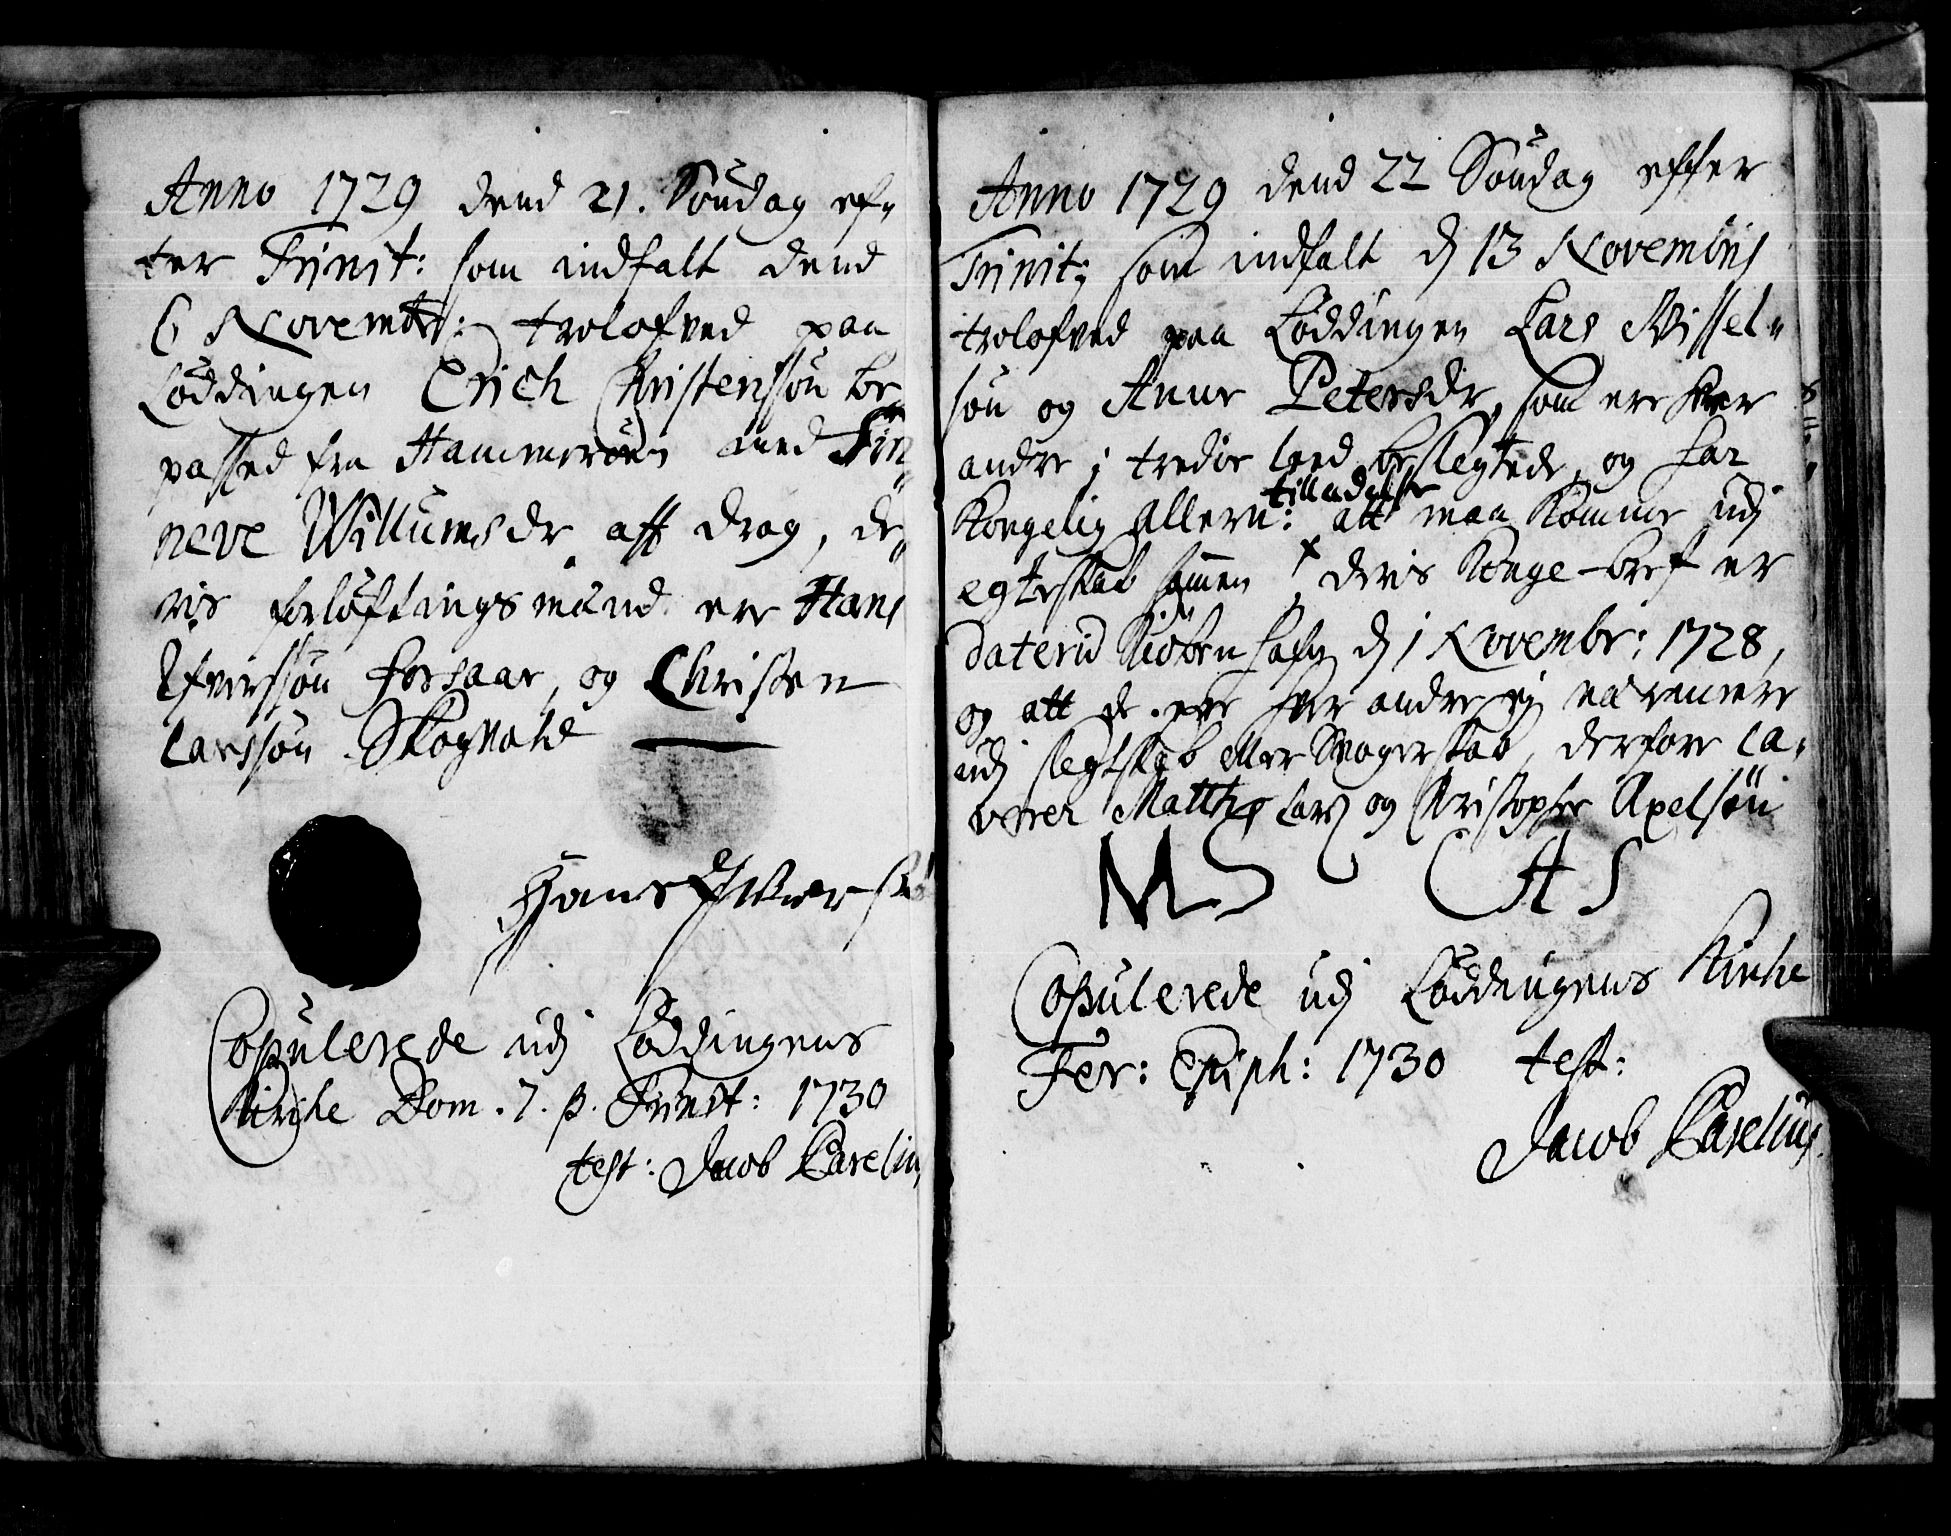 Anno 1729 dend 21. Søndag ef„
ter Trinit: som indfalt dend
6 Novembr: trolofved paa
Løddingen Erich Christenssøn be„
passed fra Hammerøen med Fin„
neve Willumsdr aff Drag, de„
ris forløftingsmænd ere Hans
Efverssøn Forsaae, og Christen
Larssøn
Hans Iwerss
Copulerede udj Løddingens
Kirche Dom. 7. p. Trinit: 1730
test: Jacob Parelius
Anno 1729 dend 22 Søndag effter
Trinit: som indfalt d 13 Novembris
trolofved paa Løddingen Lars Nissel„
søn og Anne Petersdr, som ere hver
andre i tredie leed beslegtede, og har
Kongelig Allern: tilladelse att maa komme udj
egteskab sammen, deris Konge-bref er
daterid Kiøbenhafn d 1 Novembr: 1728,
og att de ere hver andre ej nærmere
udj slegtskab eller Svogerskab, derfore ca„
verer Matths Lars og Christopher Axelsøn
MS CAS
Copulerede udj Løddingens Kirche
Fer: Epiph: 1730 test:
Jacob Parelius.